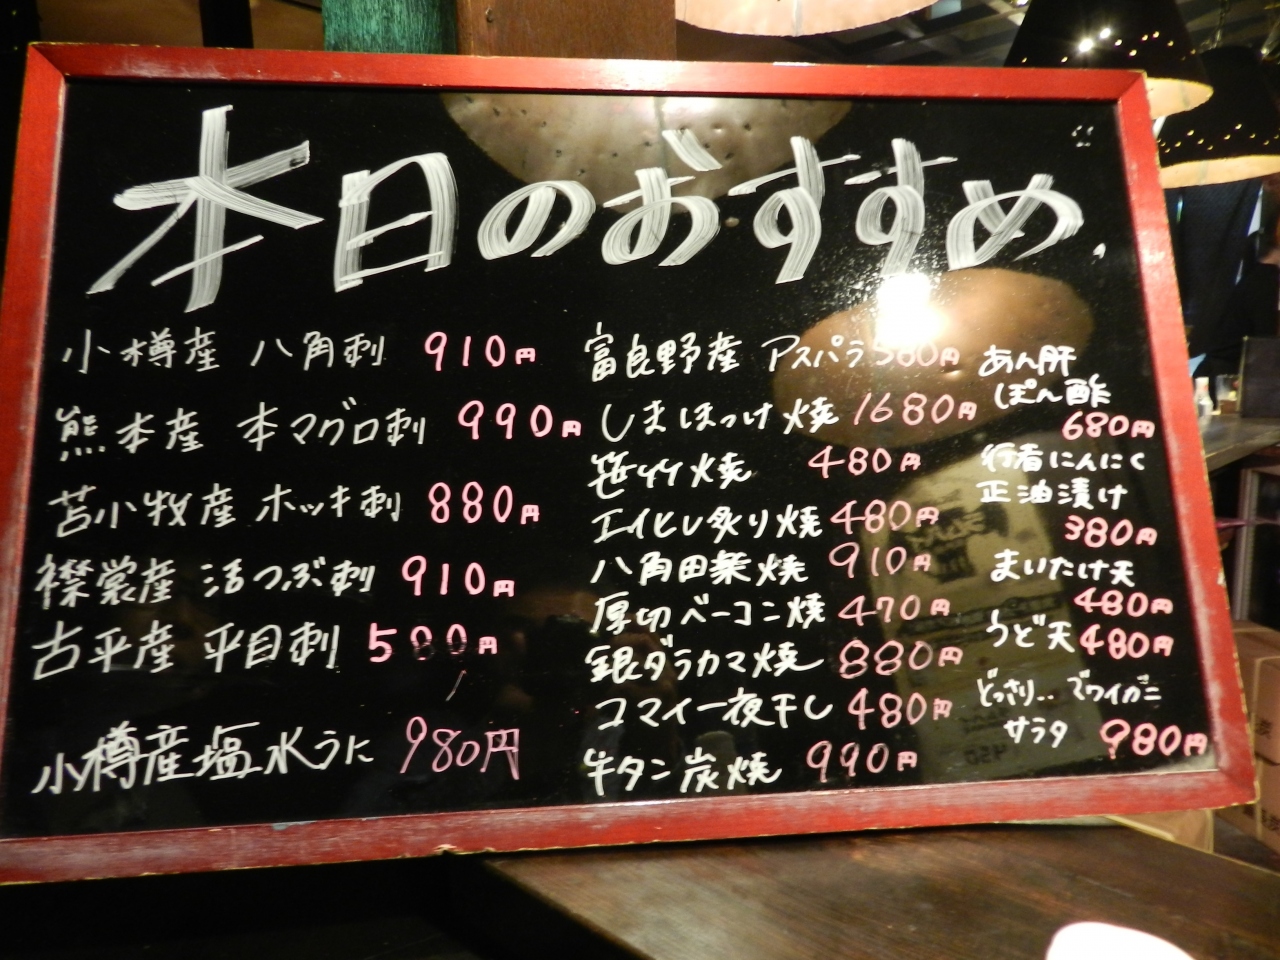 本日のおすすめ
小樽産 八角刺 910円
熊本産 本マグロ刺 990円
苫小牧産 ホッキ刺 880円
襟裳産 活つぶ刺 910円
古平産 平目刺 580円
小樽産塩水うに 980円
富良野産 アスパラ 580円
しまほっけ焼 1680円
笹竹焼 480円
エイヒレ炙り焼 480円
八角田楽焼 910円
厚切ベーコン焼 470円
銀ダラカマ焼 880円
コマイ一夜干し 480円
牛タン炭焼 990円
あん肝
ぽん酢
680円
行者にんにく
正油漬け
380円
まいたけ天
480円
うど天 480円
どっさり… ズワイガニ
サラダ 980円